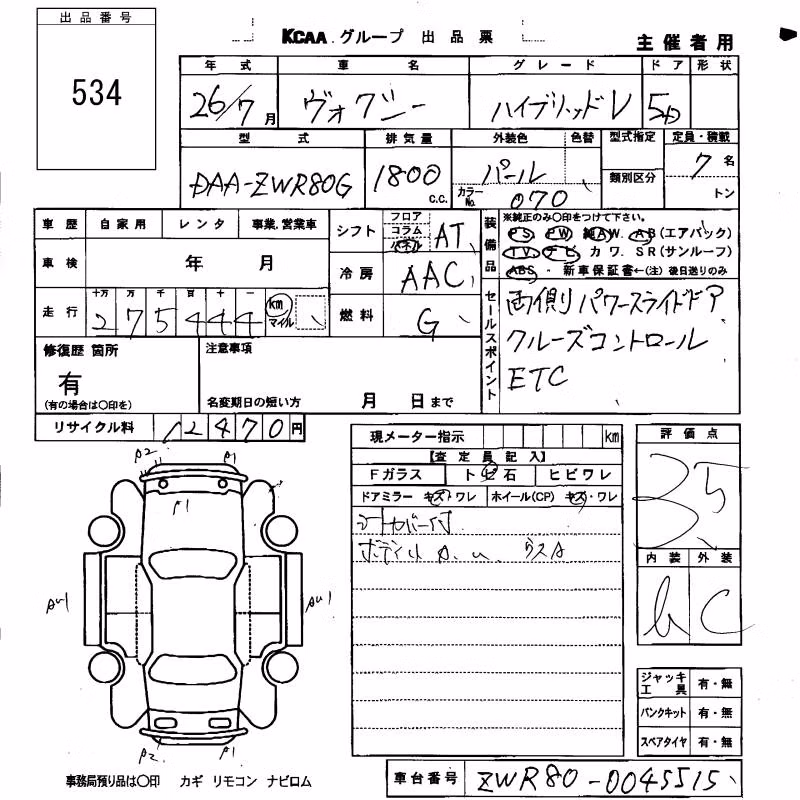 出品番号
534
KCAA グループ 出品票
主催者用
年式 車名 グレード ドア 形状
26/7月 ヴォクシー ハイブリッドV 5D
型式 排気量 外装色 色替 型式指定 定員・積載
DAA-ZWR80G 1800 c.c. パール 7名
カラーNo. 070 類別区分 トン
車歴 自家用 レンタ 事業.営業車
シフト フロア コラム パネル AT
装備品 ※純正のみ○印をつけて下さい。
PS. PW. 純AW. AB(エアバック)
TV. ナビ カワ. SR(サンルーフ)
ABS ・ 新車保証書←(注)後日送りのみ
車検 年 月
冷房 AAC
走行 十万 万 千 百 十 一
275444 km マイル
燃料 G
セールスポイント
両側パワースライドドア
クルーズコントロール
ETC
修復歴 箇所
有
(有の場合は○印を)
注意事項
名変期日の短い方 月 日まで
リサイクル料 12470円
現メーター指示 km
【査定員記入】
Fガラス トビ石 ヒビワレ
ドアミラー キズ・ワレ ホイール(CP) キズ・ワレ
シートカバー付
評価点
35
内装 外装
C
A2 A1
A1
AU1 AU1
A2 A1
ジャッキ工具 有・無
パンクキット 有・無
スペアタイヤ 有・無
事務局預り品は○印 カギ リモコン ナビロム
車台番号 ZWR80-0045515